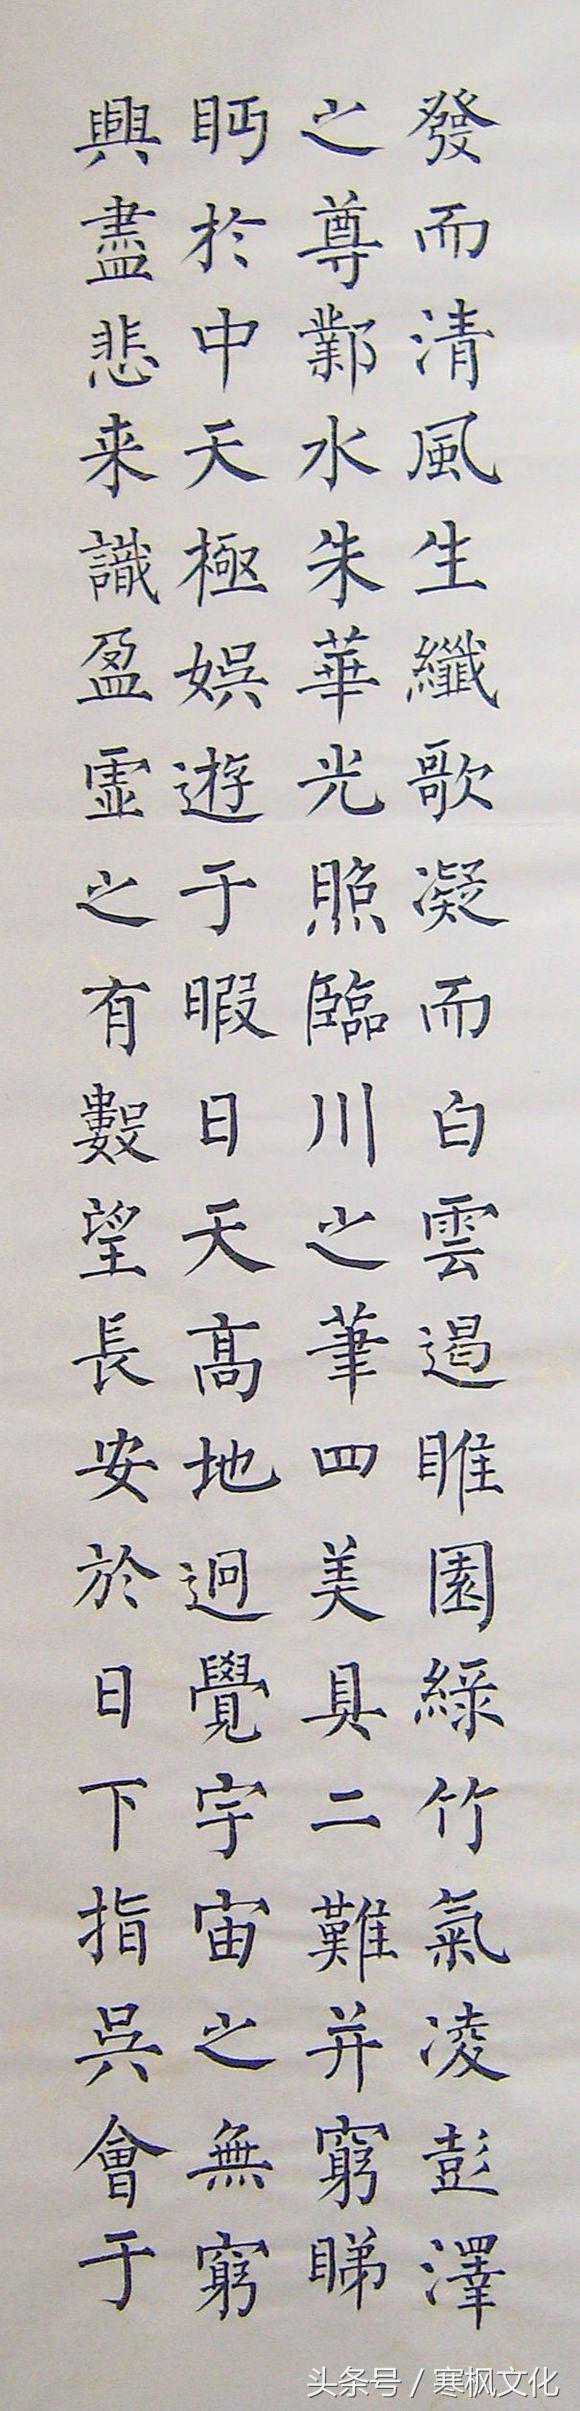 發而清風生纖歌凝而白雲遏睢園綠竹氣凌彭澤
之尊鄴水朱華光照臨川之筆四美具二難并窮睇
眄於中天極娛遊于暇日天高地迥覺宇宙之無窮
興盡悲来識盈虛之有數望長安於日下指吳會于
头条号／寒枫文化